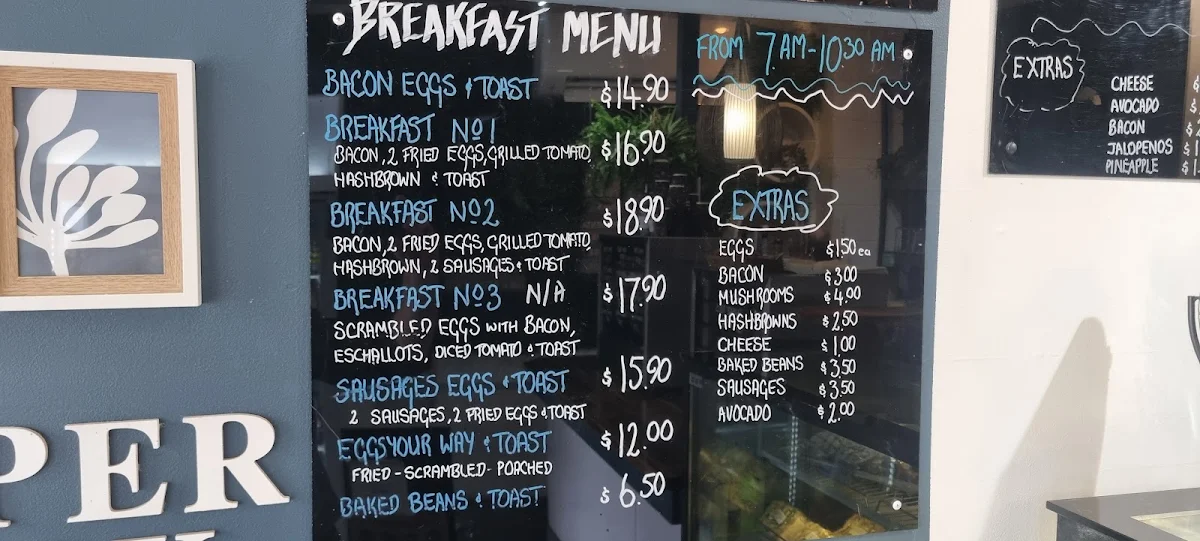 BREAKFAST MENU
FROM 7AM-1030 AM
BACON EGGS & TOAST $14.90
BREAKFAST No1 $16.90
BACON, 2 FRIED EGGS, GRILLED TOMATO,
HASHBROWN & TOAST
BREAKFAST No2 $18.90
BACON, 2 FRIED EGGS, GRILLED TOMATO,
HASHBROWN, 2 SAUSAGES & TOAST
BREAKFAST No3 N/A $17.90
SCRAMBLED EGGS WITH BACON,
ESCHALLOTS, DICED TOMATO & TOAST
SAUSAGES EGGS & TOAST $15.90
2 SAUSAGES, 2 FRIED EGGS & TOAST
EGGS YOUR WAY & TOAST $12.00
FRIED - SCRAMBLED - POACHED
BAKED BEANS & TOAST $6.50
EXTRAS
EGGS $1.50 ea
BACON $3.00
MUSHROOMS $4.00
HASHBROWNS $2.50
CHEESE $1.00
BAKED BEANS $3.50
SAUSAGES $3.50
AVOCADO $2.00
EXTRAS
CHEESE
AVOCADO
BACON
JALOPENOS
PINEAPPLE
PER